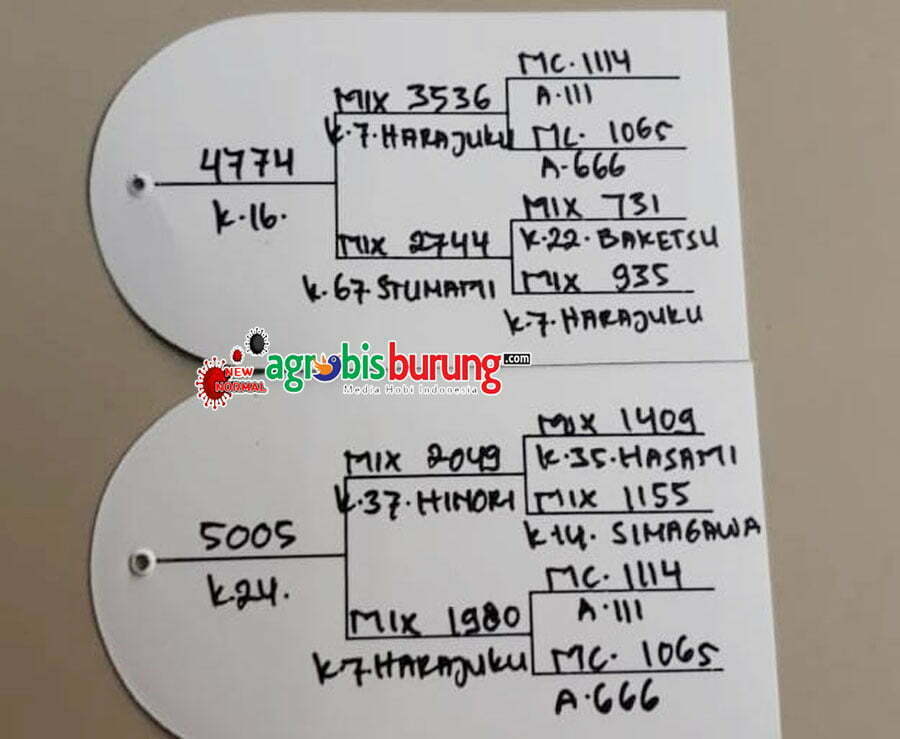 MC. 1114
MIX 3536
A-111
K.7. HARAJUKU
MC. 1065
4774
A-666
K.16.
MIX 731
MIX 2744
K.22. BAKETSU
K.67 STUMAMI
MIX 935
K.7. HARAJUKU
NEW NORMAL
agrobisburung.com
Media Hobi Indonesia
MIX 1409
MIX 2049
K.35. HASAMI
K.37. HINORI
MIX 1155
5005
K.14. SIMAGAWA
K.24.
MC. 1114
MIX 1980
A.111
K.7. HARAJUKU
MC. 1065
A.666